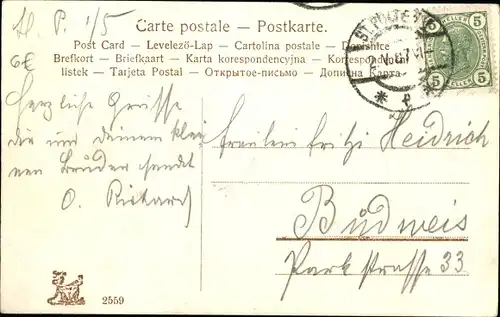 St. P. 1/5
6€
Carte postale – Postkarte.
Post Card – Levelező-Lap – Cartolina postale – Dopisnice
Brefkort – Briefkaart – Karta korespondencyjna – Korrespondenční
lístek – Tarjeta Postal – Открытое-письмо – Дописна Карта
5 HELLER 5
5 5
Herzliche Grüsse
die und deinem klei
nen Bruder sendet
O. Rickard
Fräulein Fritzi Heidrich
Budweis
Parkstrasse 33
2559